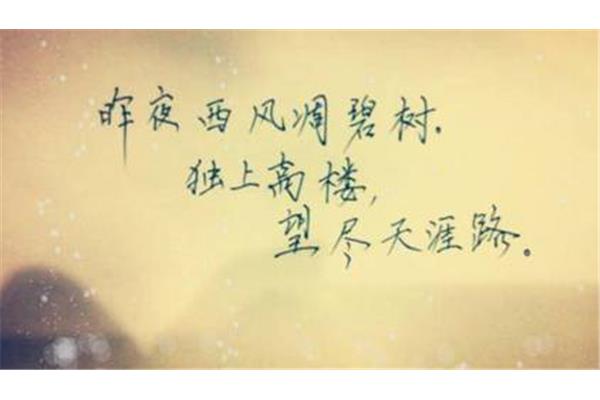 昨夜西风凋碧树.
独上高楼,
望尽天涯路。